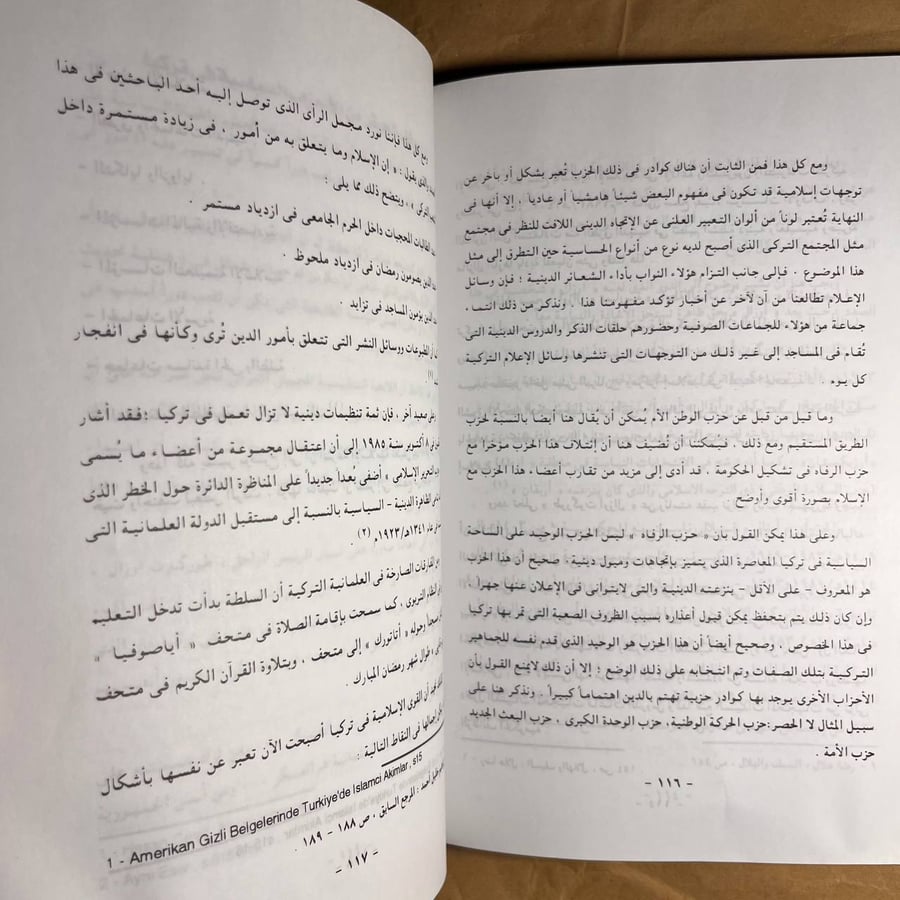 ومع كل هذا فمن الثابت أن هناك كوادر فى ذلك الحزب تُعبر بشكل أو بآخر عن
توجهات إسلامية قد تكون فى مفهوم البعض شيئاً هامشياً أو عادياً ، إلا أنها فى
النهاية تُعتبر لوناً من ألوان التعبير العلنى عن الإتجاه الدينى اللافت للنظر فى مجتمع
مثل المجتمع التركى الذى أصبح لديه نوع من أنواع الحساسية حين التطرق إلى مثل
هذا الموضوع . فإلى جانب التزام هؤلاء النواب بأداء الشعائر الدينية ؛ فإن وسائل
الإعلام تطالعنا من آن لآخر عن أخبار تؤكد مفهومنا هذا . ونذكر من ذلك انتماء
جماعة من هؤلاء للجماعات الصوفية وحضورهم حلقات الذكر والدروس الدينية التى
تُقام فى المساجد إلى غير ذلك من التوجهات التى تنشرها وسائل الإعلام التركية
كل يوم .
وما قيل من قبل عن حزب الوطن الأم يُمكن أن يُقال هنا أيضاً بالنسبة لحزب
الطريق المستقيم ومع ذلك . فيُمكننا أن نُضيف هنا أن إئتلاف هذا الحزب مؤخرا مع
حزب الرفاه فى تشكيل الحكومة . قد أدى إلى مزيد من تقارب أعضاء هذا الحزب مع
الإسلام بصورة أقوى وأوضح .
وعلى هذا يمكن القول بأن « حزب الرفاه » ليس الحزب الوحيد على الساحة
السياسية فى تركيا المعاصرة الذى يتميز بإتجاهات وميول دينية . صحيح أن هذا الحزب
هو المعروف - على الأقل - بنزعته الدينية والتى لايتوانى فى الإعلان عنها جهراً ،
وإن كان ذلك يتم بتحفظ يمكن قبول أعذاره بسبب الظروف الصعبة التى تمر بها تركيا
فى هذا الخصوص . وصحيح أيضاً أن هذا الحزب هو الوحيد الذى قدم نفسه للجماهير
التركية بتلك الصفات وتم انتخابه على ذلك الوضع ؛ إلا أن ذلك لايمنع القول بأن
الأحزاب الأخرى يوجد بها كوادر حزبية تهتم بالدين اهتماماً كبيراً . ونذكر هنا على
سبيل المثال لا الحصر:حزب الحركة الوطنية، حزب الوحدة الكبرى ، حزب البعث الجديد
حزب الأمة .
- ١١٦ -
ومع كل هذا فإننا نورد مجمل الرأى الذى توصل إليه أحد الباحثين فى هذا
والذى يقول : « إن الإسلام وما يتعلق به من أمور ، فى زيادة مستمرة داخل
التركى » ، ويتضح ذلك مما يلى :
الطالبات المحجبات داخل الحرم الجامعى فى ازدياد مستمر .
الذين يصومون رمضان فى ازدياد ملحوظ .
الذين يؤمون المساجد فى تزايد .
المطبوعات ووسائل النشر التى تتعلق بأمور الدين تُرى وكأنها فى انفجار
(١)
صعيد آخر ، فإن ثمة تنظيمات دينية لا تزال تعمل فى تركيا ؛ فقد أشار
٨ أكتوبر سنة ١٩٨٥ إلى أن اعتقال مجموعة من أعضاء ما يُسمى
التحرير الإسلامى » أضفى بُعداً جديداً على المناظرة الدائرة حول الخطر الذى
الظاهرة الدينية - السياسية بالنسبة إلى مستقبل الدولة العلمانية التى
عام ١٣٤١هـ/١٩٢٣م (٢) .
المفارقات الصارخة فى العلمانية التركية أن السلطة بدأت تدخل التعليم
النظام التربوى ، كما سمحت بإقامة الصلاة فى متحف « أياصوفيا »
وحوله « أتاتورك » إلى متحف ، وبتلاوة القرآن الكريم فى متحف
طوال شهر رمضان المبارك .
أن القوى الإسلامية فى تركيا أصبحت الآن تعبر عن نفسها بأشكال
إجمالها فى النقاط التالية :
1 - Amerikan Gizli Belgelerinde Turkiye'de Islamci Akimlar, s15
أحمد : المرجع السابق ، ص ١٨٨ - ١٨٩ .
- ١١٧ -